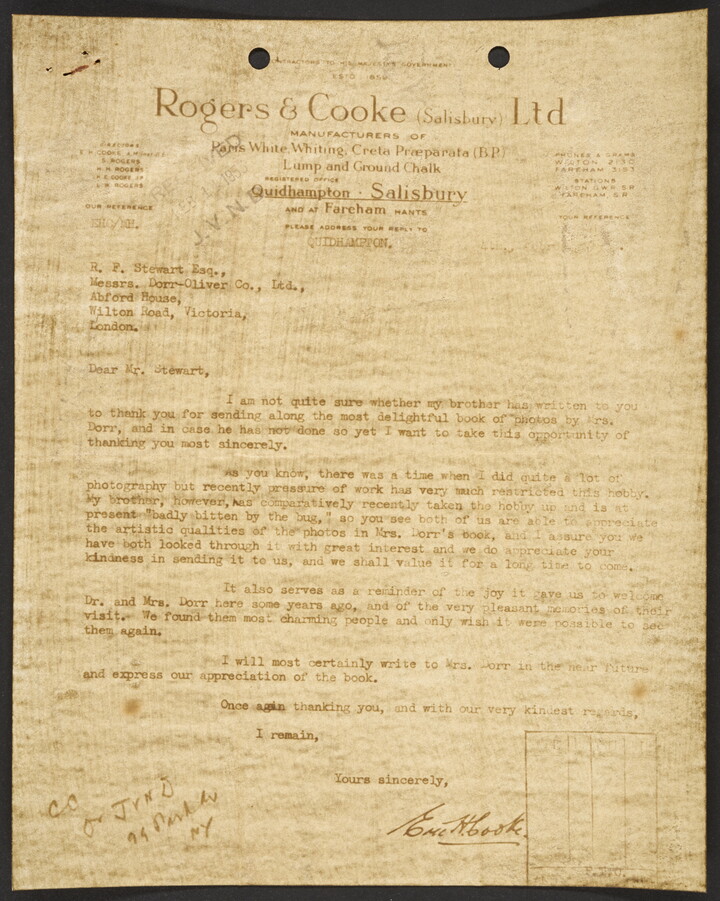 CONTRACTORS TO HIS MAJESTY'S GOVERNMENT
ESTD 1850
Rogers & Cooke (Salisbury) Ltd
MANUFACTURERS OF
Paris White, Whiting, Creta Præparata (B.P.)
Lump and Ground Chalk
REGISTERED OFFICE
Quidhampton · Salisbury
AND AT Fareham HANTS
PLEASE ADDRESS YOUR REPLY TO
QUIDHAMPTON.
DIRECTORS
S. ROGERS
H. H. ROGERS
L. W. ROGERS
OUR REFERENCE
PHONES & GRAMS
WILTON 2130
FAREHAM 3193
STATIONS
WILTON G.W.R. S.R.
FAREHAM, S.R.
YOUR REFERENCE
J.V.N.D.
R. F. Stewart Esq.,
Messrs. Dorr-Oliver Co., Ltd.,
Abford House,
Wilton Road, Victoria,
London.
Dear Mr. Stewart,
I am not quite sure whether my brother has written to you
to thank you for sending along the most delightful book of photos by Mrs.
Dorr, and in case he has not done so yet I want to take this opportunity of
thanking you most sincerely.
As you know, there was a time when I did quite a lot of
photography but recently pressure of work has very much restricted this hobby.
My brother, however, has comparatively recently taken the hobby up and is at
present "badly bitten by the bug," so you see both of us are able to appreciate
the artistic qualities of the photos in Mrs. Dorr's book, and I assure you we
have both looked through it with great interest and we do appreciate your
kindness in sending it to us, and we shall value it for a long time to come.
It also serves as a reminder of the joy it gave us to welcome
Dr. and Mrs. Dorr here some years ago, and of the very pleasant memories of their
visit. We found them most charming people and only wish it were possible to see
them again.
I will most certainly write to Mrs. Dorr in the near future
and express our appreciation of the book.
Once again thanking you, and with our very kindest regards,
I remain,
Yours sincerely,
Eric H. Cooke.
CC
JVND
99 Park Av
NY